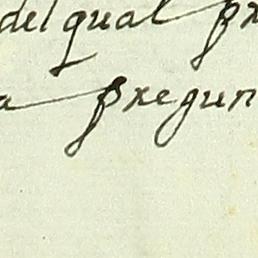 del qual pr
a pregun